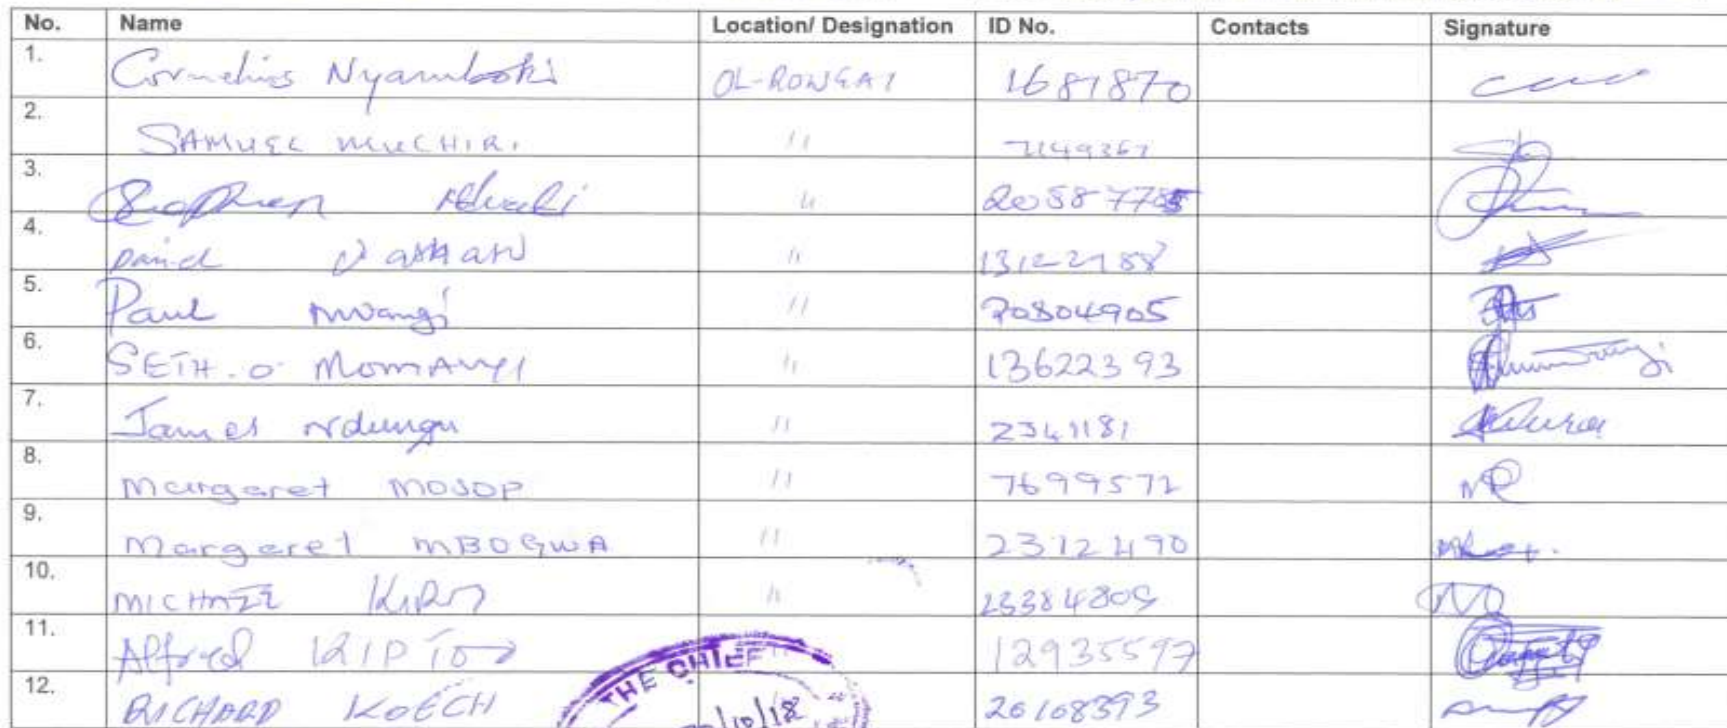 No. Name Location/ Designation ID No. Contacts Signature
1. Cornelius Nyamboki OL-RONGAI 1681870
2. SAMUEL MUCHIRI 〃 7149361
3. Stephen 〃 20588778
4. David 〃 13122188
5. Paul Mwangi 〃 20804905
6. SETH.O. MOMANYI 〃 13622393
7. James Ndungu 〃 2341181
8. Margaret MOSOP 〃 7699572
9. Margaret MBOGWA 〃 2312490
10. 〃 23384809
11. Alfred KIPTOO 12935597
12. RICHARD KOECH 20108393
THE CHIEF
/10/18